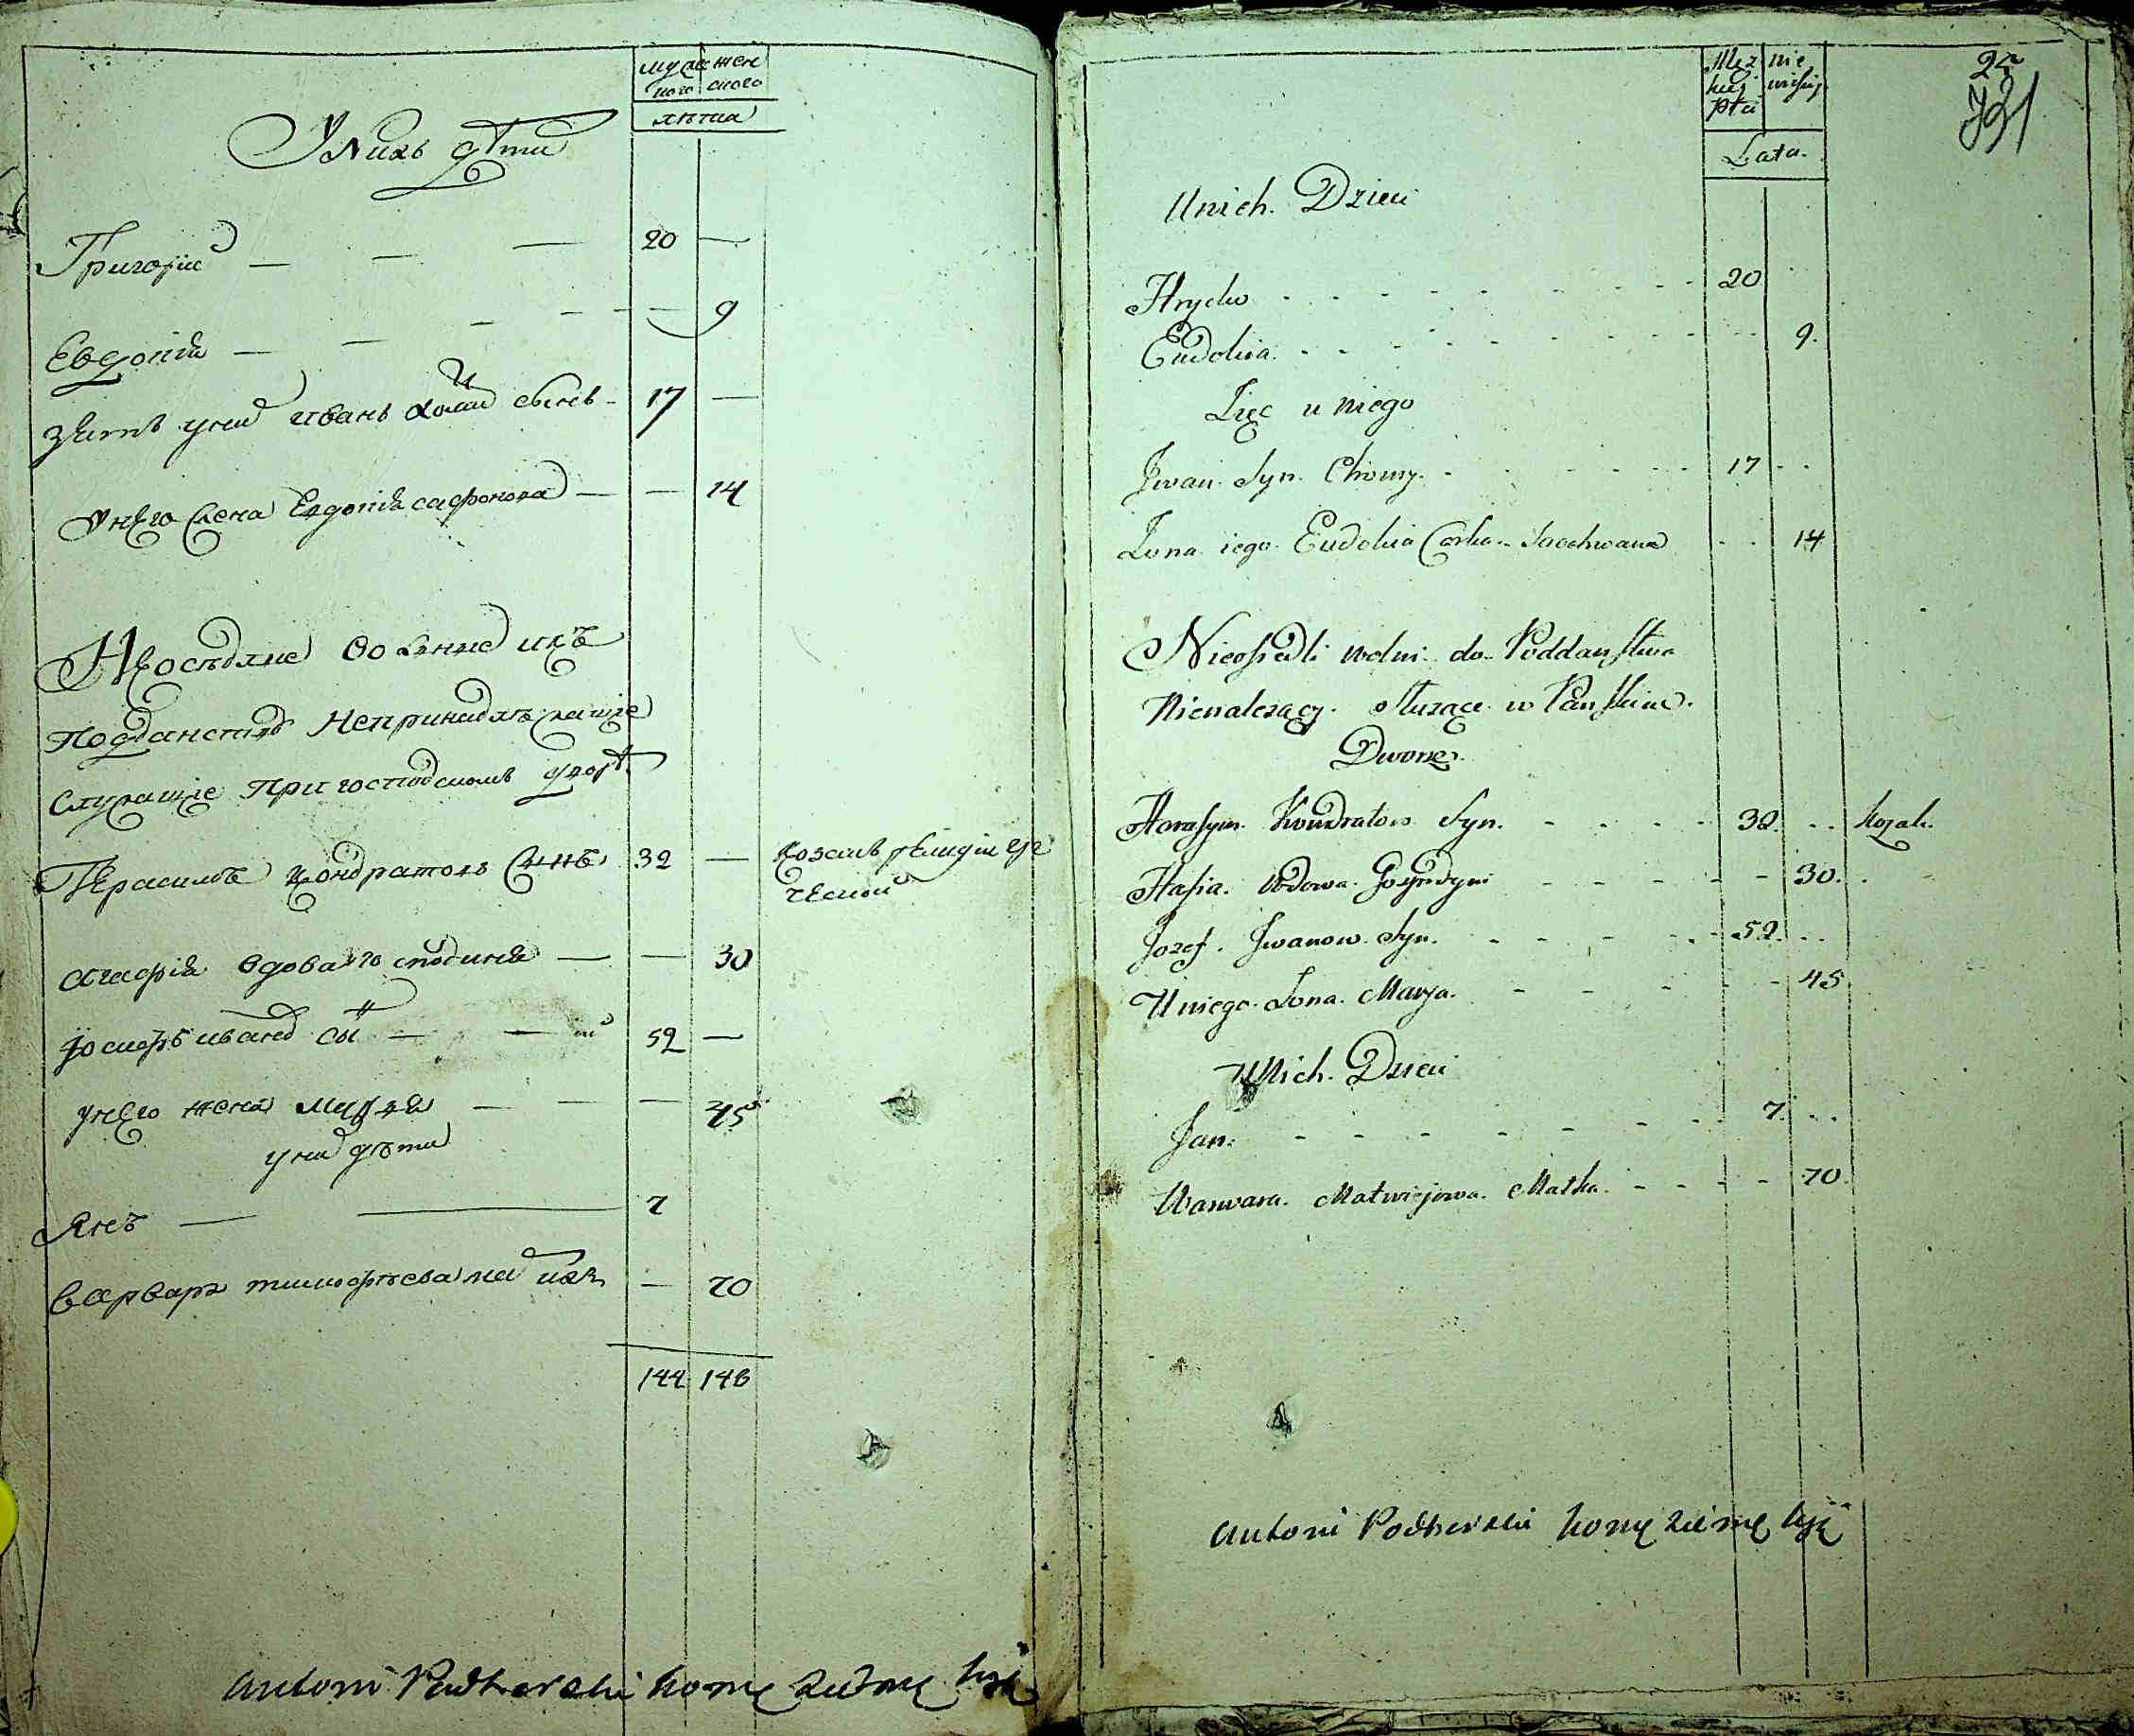 мужескаго женскаго
лѣта
У нихъ дѣти
Григорій — — — 20 —
Евдокія — — — — — 9
зять у них иванъ Хоми сынъ - 17 —
У него жена Евдокія сафонова — — 14
Неосѣдлые вольные ихъ
подданству непринадлежащіе
Служащіе при господскомъ дворѣ
Герасимъ Кондратовъ Сынъ 32 — Козакъ религіи гре
ческой
Агафія вдова господиня — — 30
Іосифъ иванов сы — — 52 —
у него жена Марья — — — 45
у них дѣти
Янъ — — 7
Варвара тимофѣева матка — 70
144 146
Antoni Podherski
Męzkiej płci niewiesciej
Lata.
731
U nich. Dzieci
Hryćko 20
Eudokia. 9.
Zięć u niego
Jwan. Syn. Chomy. 17
Żona iego. Eudokia Corka
14
Nieosiedli wolni do Poddanstwa
Nienalezący. służące w Panskim.
Dworze.
Harasym. Kondratow. Syn. 32. Kozak.
Hafia. Wdowa. Gospodyni 30.
Jozef. Jwanow. Syn. 52.
U niego. Żona. Marya. 45
U Nich. Dzieci
Jan. 7.
Warwara. Matwiejowa. Matka. 70.
Antoni Podherski